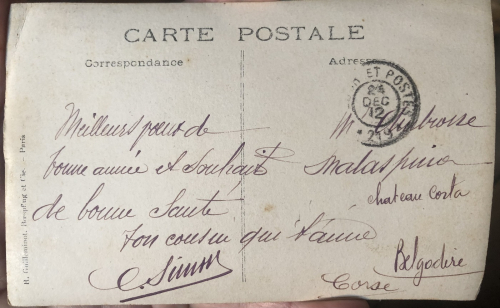 CARTE POSTALE
Correspondance
Adresse
ET POSTES
24
DEC
12
Meilleurs voeux de
bonne année et Souhait
de bonne Santé
ton cousin qui t'aime
C. Simon
M Ambrosse
Malaspina
chateau Costa
Belgodère
Corse
R. Guilleminot, Boespflug et Cie. — Paris